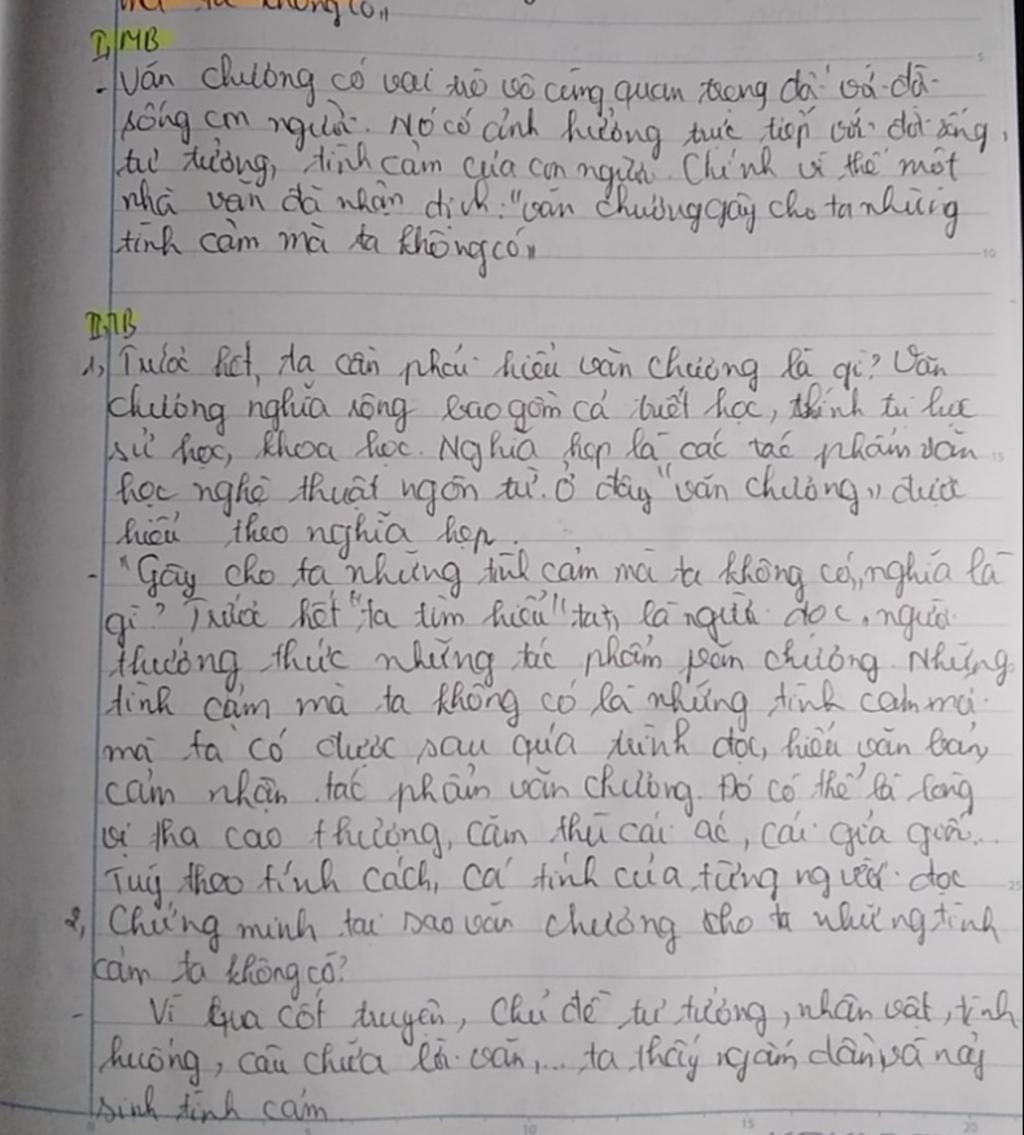 mà ta không có"
I, MB
- Văn chương có vai trò vô cùng quan trọng đối với đời
sống con người. Nó có ảnh hưởng trực tiếp với đời sống,
tư tưởng, tình cảm của con người. Chính vì thế một
nhà văn đã nhận định: "văn chương gây cho ta những
tình cảm mà ta không có"
II, TB
1, Trước hết, ta cần phải hiểu văn chương là gì? Văn
chương nghĩa rộng bao gồm cả triết học, chính trị học
sử học, khoa học. Nghĩa hẹp là các tác phẩm văn
học nghệ thuật ngôn từ. Ở đây "văn chương" được
hiểu theo nghĩa hẹp.
- "Gây cho ta những tình cảm mà ta không có" nghĩa là
gì? Trước hết "ta tìm hiểu" "ta" là người đọc, người
thưởng thức những tác phẩm văn chương. Những
tình cảm mà ta không có là những tình cảm mới
mà ta có được sau quá trình đọc, hiểu văn bản,
cảm nhận tác phẩm văn chương. Đó có thể là lòng
vị tha cao thượng, căm thù cái ác, cái giả dối...
Tuỳ theo tính cách, cá tính của từng người đọc
2, Chứng minh tại sao văn chương cho ta những tình
cảm ta không có?
- Vì qua cốt truyện, chủ đề tư tưởng, nhân vật, tình
huống, câu chữa lời văn,... ta thấy ngấm dần và nảy
sinh tình cảm